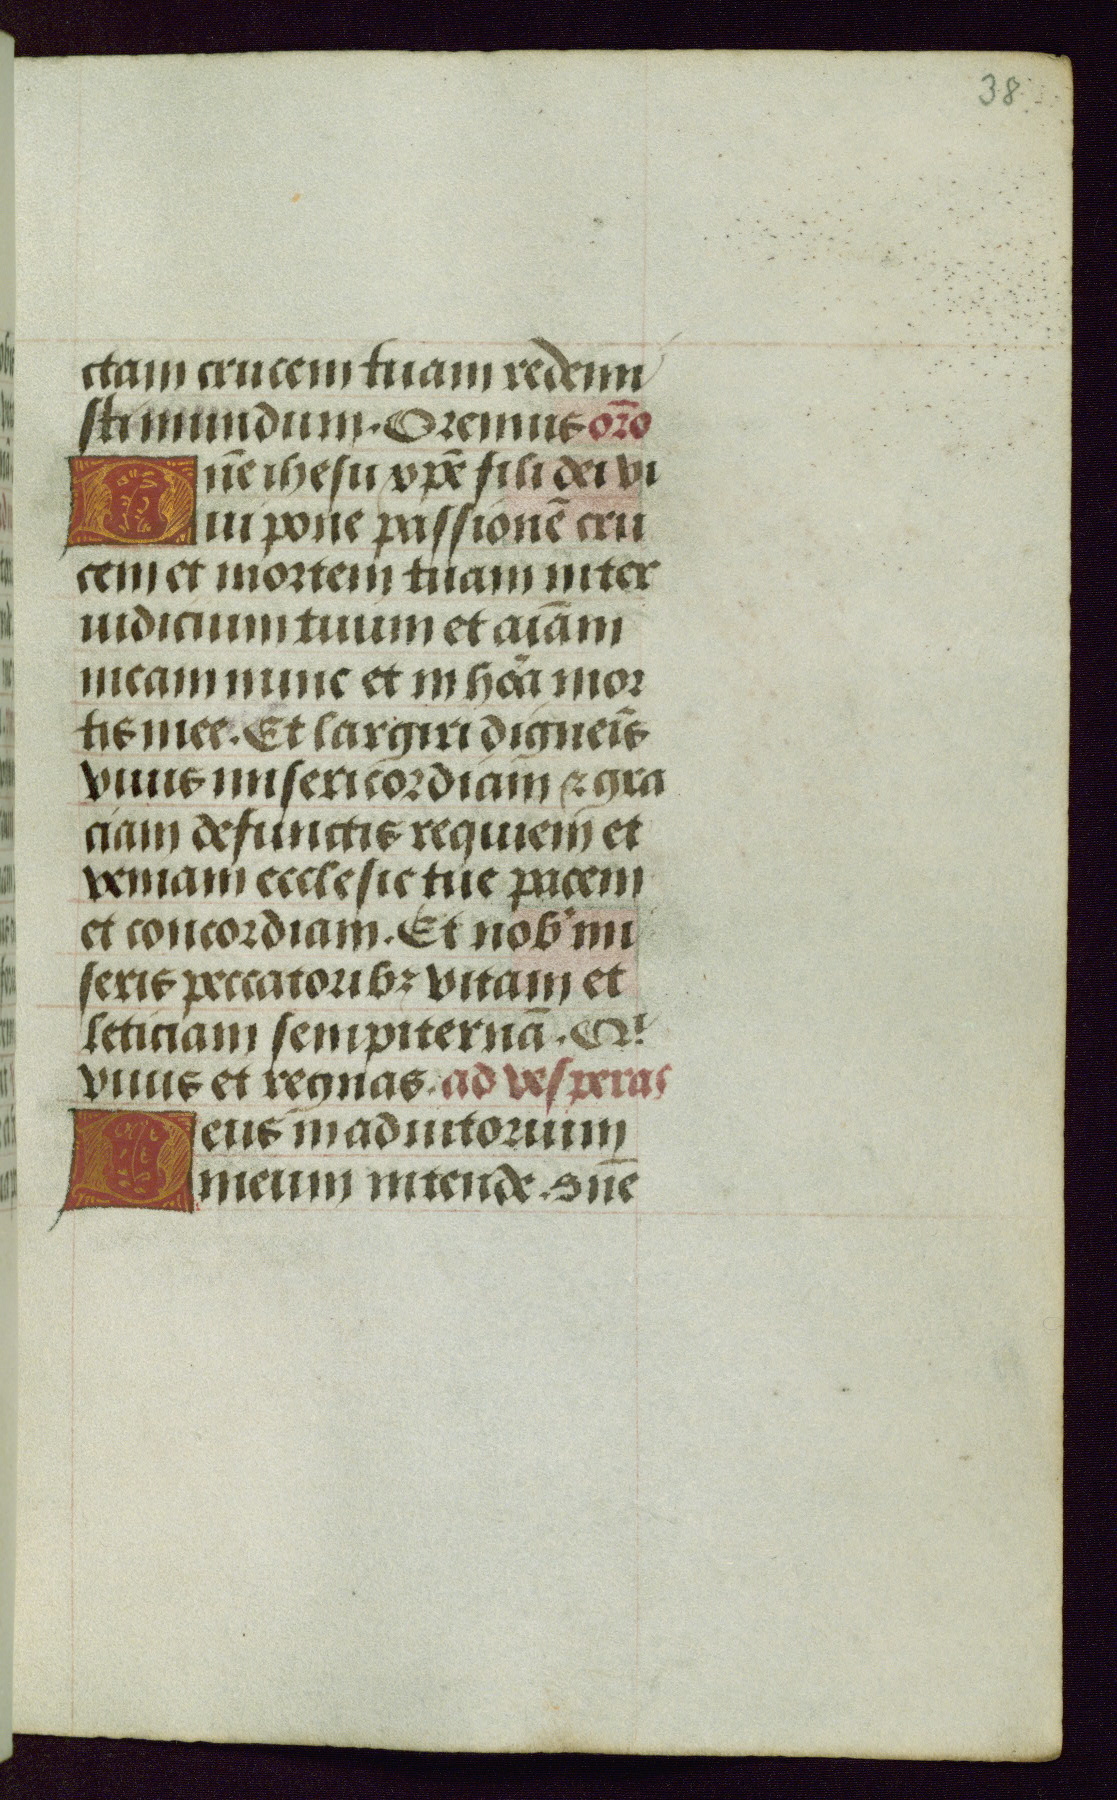 38
ctam crucem tuam redemi
sti mundum. Oremus or̄o
Dn̄e ihesu xp̄e fili dei vi
ui pone passionē cru
cem et mortem tuam inter
iudicium tuum et aīam
meam nunc et in hora mor
tis mee. Et largiri digneris
viuis misericordiam ⁊ gra
ciam defunctis requiem et
veniam ecclesie tue pacem
et concordiam. Et nob' mi
seris peccatoribꝫ vitam et
leticiam sempiternā. Qui
viuis et regnas. ad vesperas
Deus in adiutorium
meum intende. Dn̄e